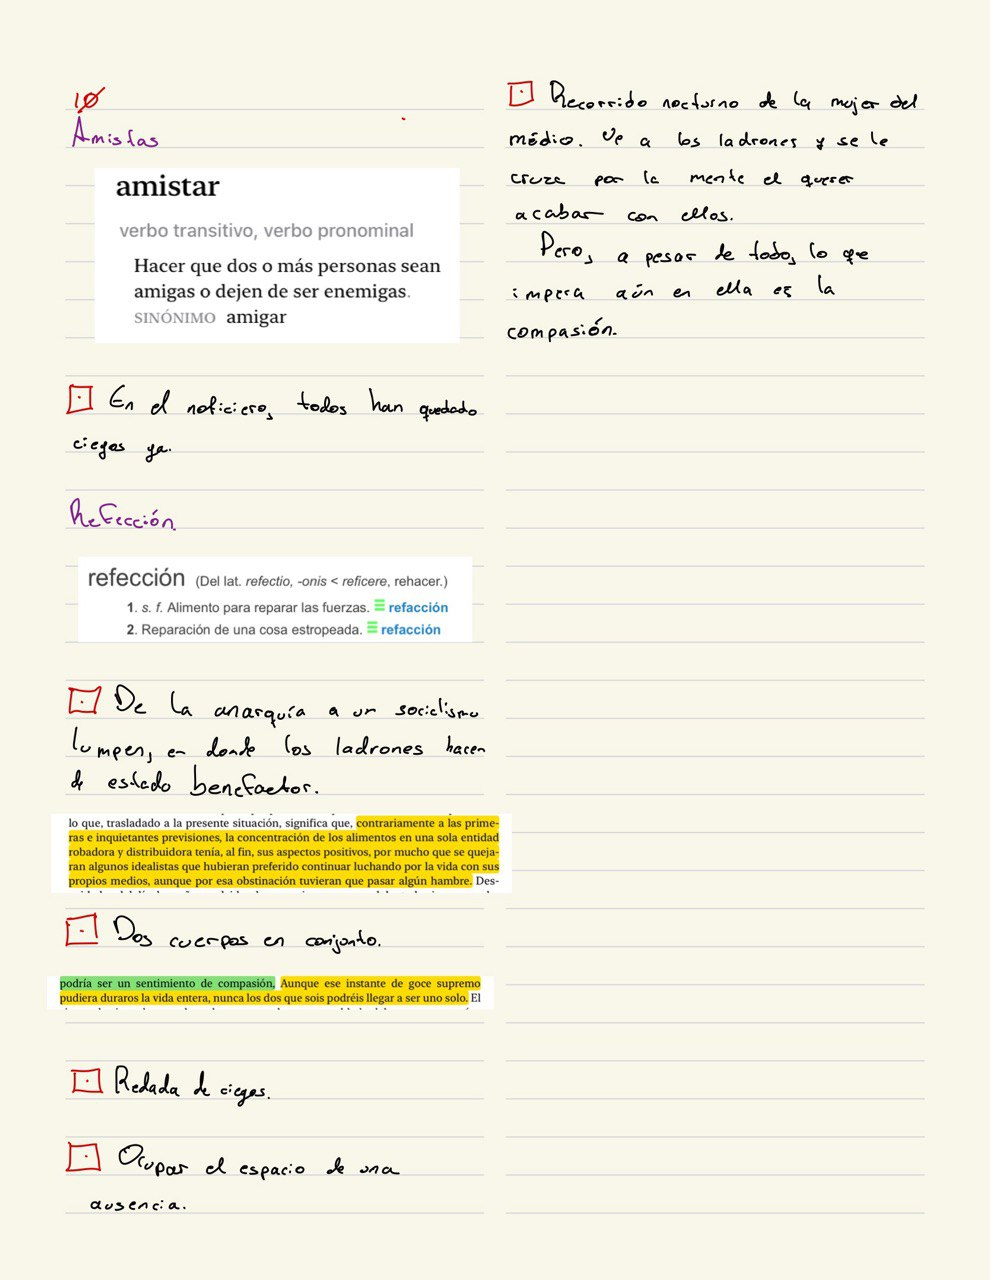 10
Amistas
amistar
verbo transitivo, verbo pronominal
Hacer que dos o más personas sean
amigas o dejen de ser enemigas.
SINÓNIMO amigar
En el noticiero, todos han quedado
ciegos ya.
Refección
refección (Del lat. refectio, -onis < reficere, rehacer.)
1. s. f. Alimento para reparar las fuerzas. refacción
2. Reparación de una cosa estropeada. refacción
De la anarquía a un socialismo
lumpen, en donde los ladrones hacen
de estado benefactor.
lo que, trasladado a la presente situación, significa que, contrariamente a las prime-
ras e inquietantes previsiones, la concentración de los alimentos en una sola entidad
robadora y distribuidora tenía, al fin, sus aspectos positivos, por mucho que se queja-
ran algunos idealistas que hubieran preferido continuar luchando por la vida con sus
propios medios, aunque por esa obstinación tuvieran que pasar algún hambre. Des-
Dos cuerpos en conjunto.
podría ser un sentimiento de compasión, Aunque ese instante de goce supremo
pudiera duraros la vida entera, nunca los dos que sois podréis llegar a ser uno solo. El
Redada de ciegos.
Ocupar el espacio de una
ausencia.
Recorrido nocturno de la mujer del
médio. Ve a los ladrones y se le
cruza por la mente el querer
acabar con ellos.
Pero, a pesar de todo, lo que
impera aún en ella es la
compasión.